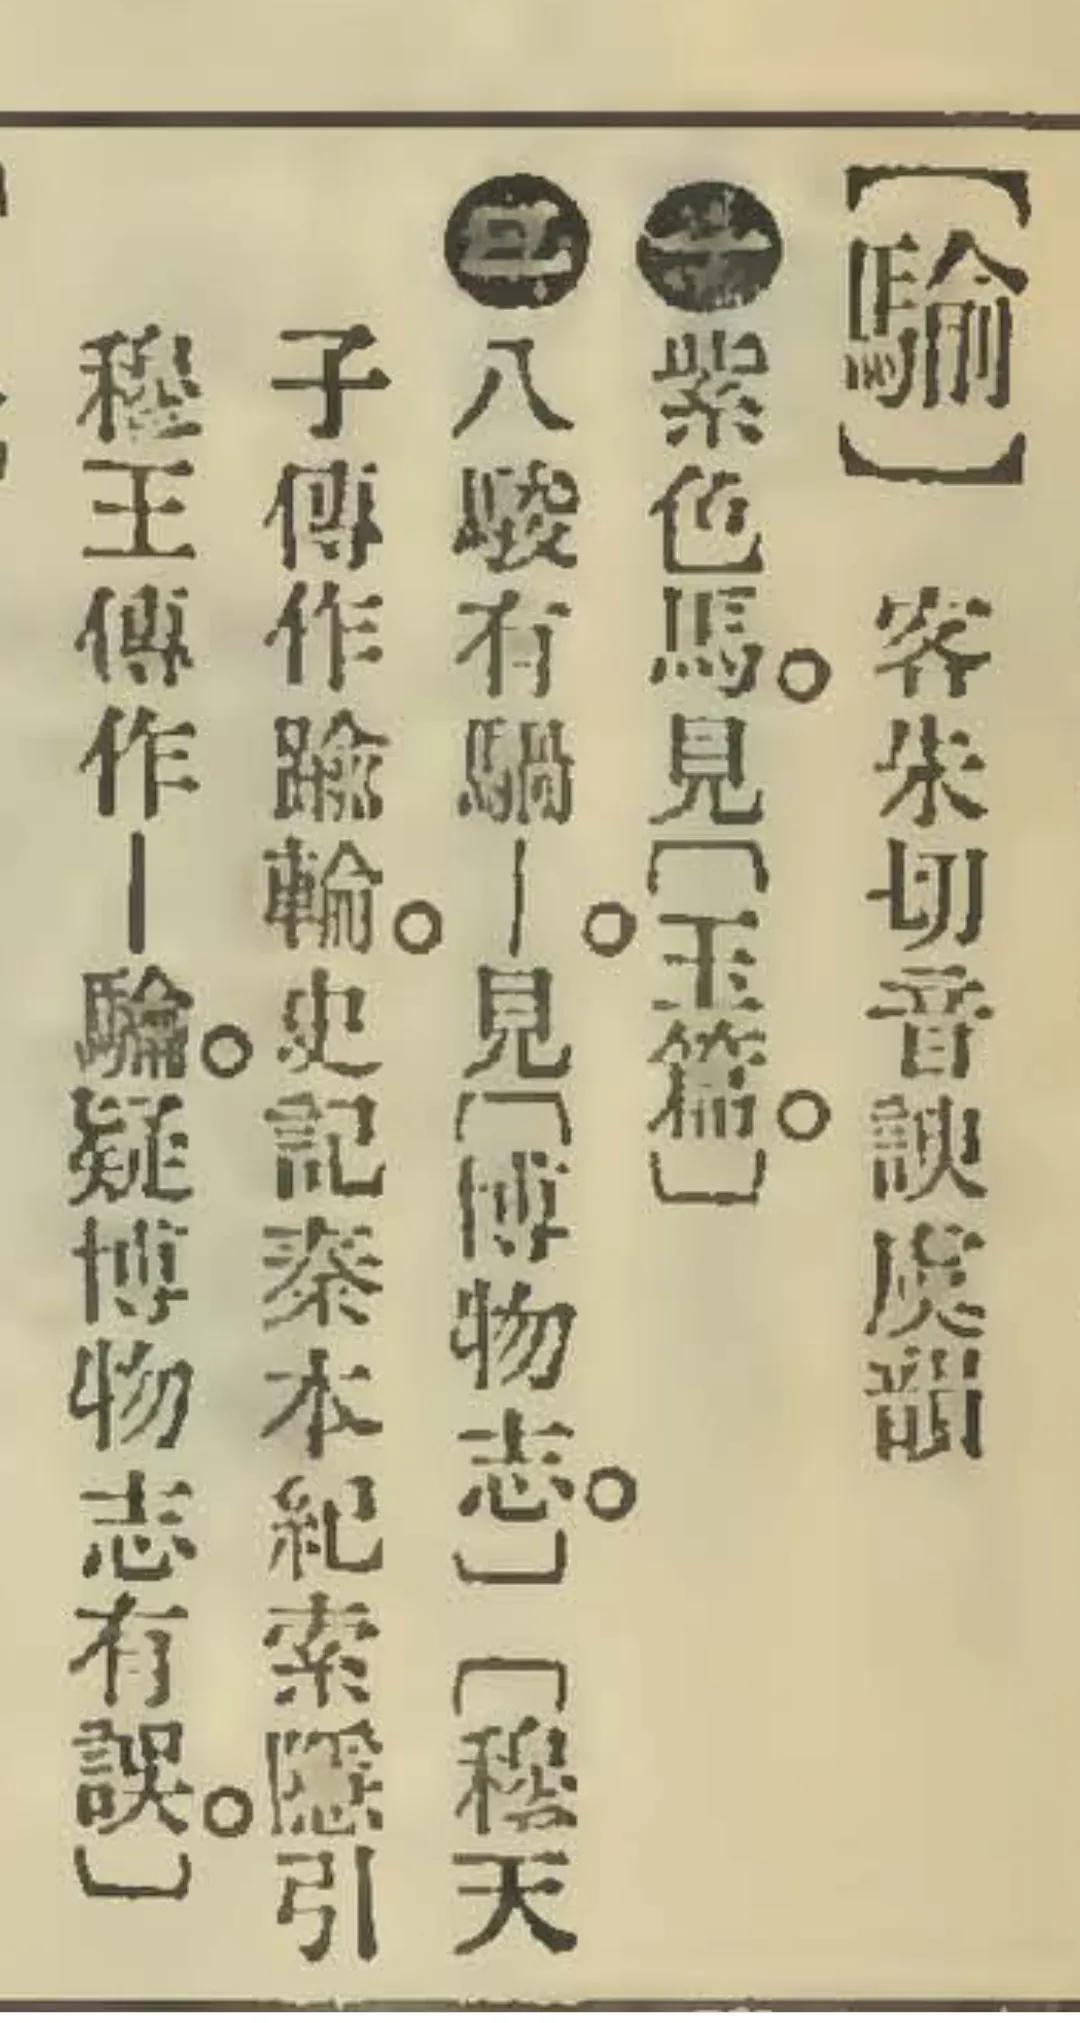 【騟】 客朱切音諛虞韻
子紫色馬。見〔玉篇〕。
丑八駿有騧—。見〔博物志〕。〔穆天
子傳作踰輪。史記秦本紀索隱引
穆王傳作—。疑博物志有誤。〕